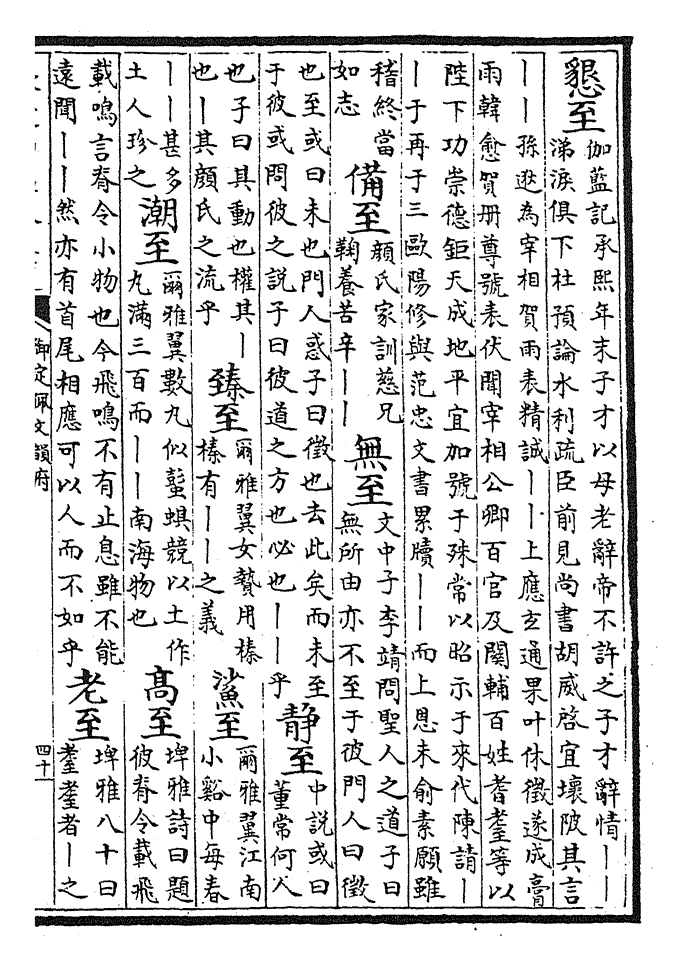 懇至
伽藍記承熙年末子才以母老辭帝不許之子才辭情丨丨
涕淚俱下杜預論水利疏臣前見尚書胡威啓宜壞陂其言
丨丨孫逖為宰相賀雨表精誠丨丨上應玄通果叶休徵遂成膏
雨韓愈賀册尊號表伏聞宰相公卿百官及關輔百姓耆耋等以
陛下功崇德鉅天成地平宜加號于殊常以昭示于來代陳請丨
丨于再于三歐陽修與范忠文書累牘丨丨而上恩未俞素願雖
稽終當
如志
備至
顏氏家訓慈兄
鞠養苦辛丨丨
無至
文中子李靖問聖人之道子曰
無所由亦不至于彼門人曰徵
也至或曰未也門人惑子曰徵也去此矣而未至
于彼或問彼之說子曰彼道之方也必也丨丨乎
靜至
中說或曰
董常何人
也子曰其動也權其丨
也丨其顏氏之流乎
臻至
爾雅翼女贄用榛
榛有丨丨之義
鯊至
爾雅翼江南
小谿中每春
丨丨甚多
土人珍之
潮至
爾雅翼數丸似蟚蜞競以土作
丸滿三百而丨丨南海物也
高至
埤雅詩曰題
彼脊令載飛
載鳴言脊令小物也今飛鳴不有止息雖不能
遠聞丨丨然亦有首尾相應可以人而不如乎
老至
埤雅八十曰
耋耋者丨之
御定佩文韻府
四十一